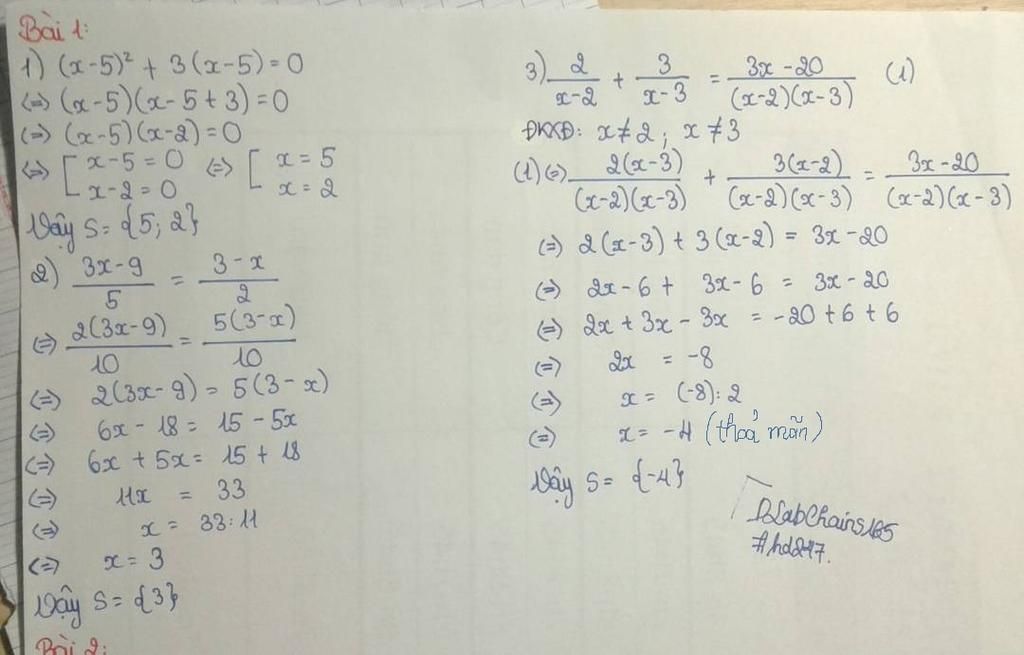 Bài 1:
1) (x-5)² + 3(x-5) = 0
(=) (x-5)(x-5+3) = 0
(=) (x-5)(x-2) = 0
(=) [ x-5 = 0 (=) [ x = 5
x-2 = 0 x = 2
Vậy S = {5; 2}
2) (3x-9)/5 = (3-x)/2
(=) 2(3x-9)/10 = 5(3-x)/10
(=) 2(3x-9) = 5(3-x)
(=) 6x - 18 = 15 - 5x
(=) 6x + 5x = 15 + 18
(=) 11x = 33
(=) x = 33:11
(=) x = 3
Vậy S = {3}
Bài 2:
3) 2/(x-2) + 3/(x-3) = (3x-20)/((x-2)(x-3)) (1)
ĐKXĐ: x ≠ 2; x ≠ 3
(1) (=) 2(x-3)/((x-2)(x-3)) + 3(x-2)/((x-2)(x-3)) = (3x-20)/((x-2)(x-3))
(=) 2(x-3) + 3(x-2) = 3x-20
(=) 2x-6 + 3x-6 = 3x-20
(=) 2x + 3x - 3x = -20+6+6
(=) 2x = -8
(=) x = (-8):2
(=) x = -4 (thoả mãn)
Vậy S = {-4}
#hd247.